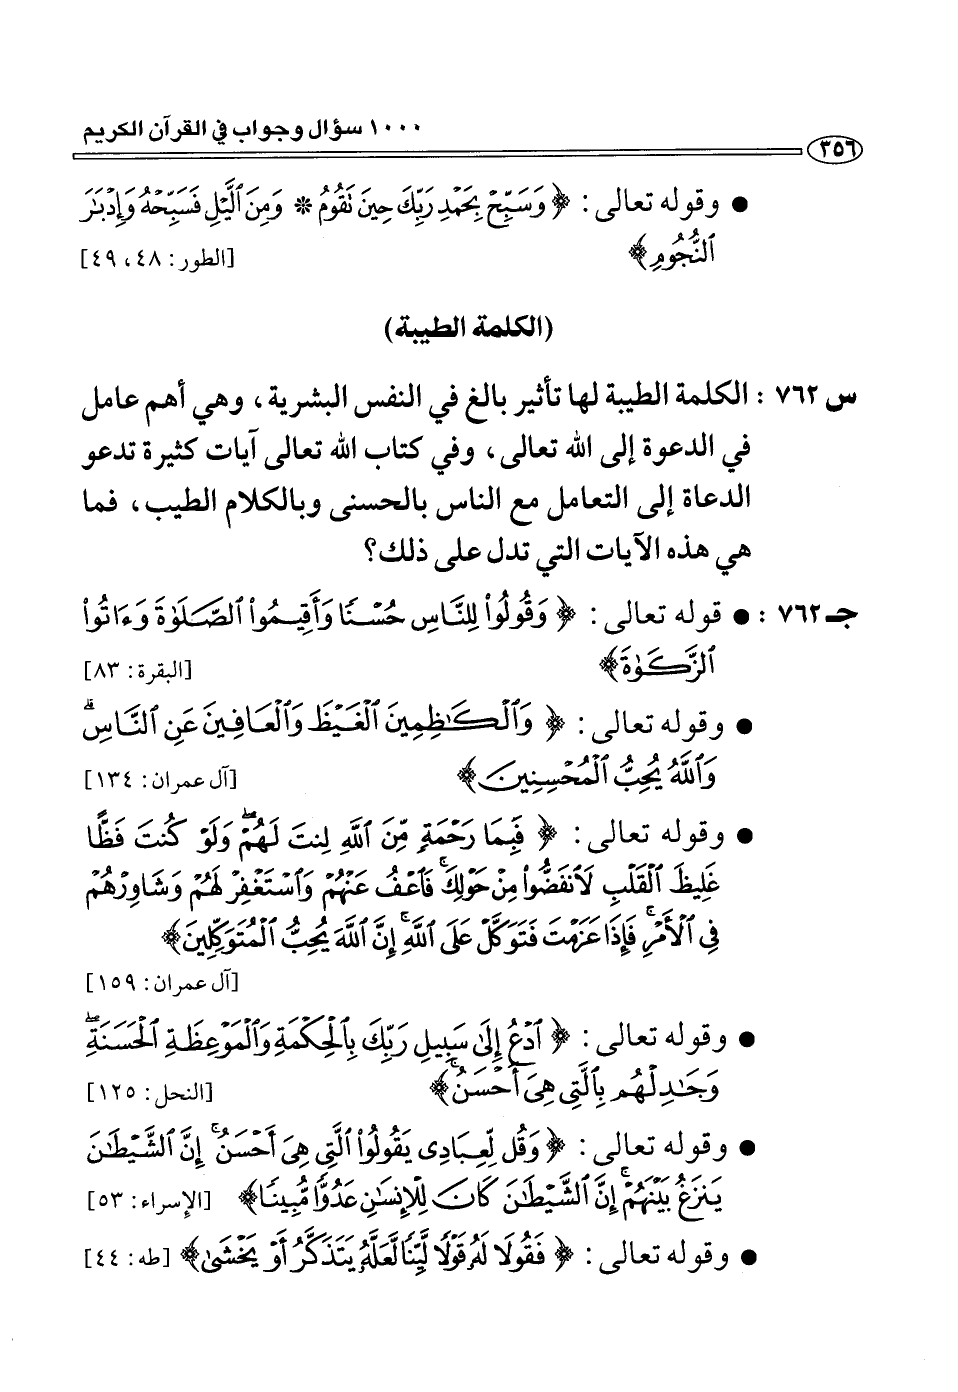 ١٠٠٠ سؤال وجواب في القرآن الكريم
٣٥٦
● وقوله تعالى: ﴿ وَسَبِّحْ بِحَمْدِ رَبِّكَ حِينَ تَقُومُ * وَمِنَ ٱلَّيْلِ فَسَبِّحْهُ وَإِدْبَٰرَ
ٱلنُّجُومِ﴾ [الطور: ٤٨، ٤٩]
(الكلمة الطيبة)
س ٧٦٢ : الكلمة الطيبة لها تأثير بالغ في النفس البشرية، وهي أهم عامل
في الدعوة إلى الله تعالى، وفي كتاب الله تعالى آيات كثيرة تدعو
الدعاة إلى التعامل مع الناس بالحسنى وبالكلام الطيب، فما
هي هذه الآيات التي تدل على ذلك؟
جـ ٧٦٢ : ● قوله تعالى: ﴿ وَقُولُوا۟ لِلنَّاسِ حُسْنًا وَأَقِيمُوا۟ ٱلصَّلَوٰةَ وَءَاتُوا۟
ٱلزَّكَوٰةَ﴾ [البقرة: ٨٣]
● وقوله تعالى: ﴿ وَٱلْكَٰظِمِينَ ٱلْغَيْظَ وَٱلْعَافِينَ عَنِ ٱلنَّاسِ ۗ
وَٱللَّهُ يُحِبُّ ٱلْمُحْسِنِينَ﴾ [آل عمران: ١٣٤]
● وقوله تعالى: ﴿ فَبِمَا رَحْمَةٍ مِّنَ ٱللَّهِ لِنتَ لَهُمْ ۖ وَلَوْ كُنتَ فَظًّا
غَلِيظَ ٱلْقَلْبِ لَٱنفَضُّوا۟ مِنْ حَوْلِكَ ۖ فَٱعْفُ عَنْهُمْ وَٱسْتَغْفِرْ لَهُمْ وَشَاوِرْهُمْ
فِى ٱلْأَمْرِ ۖ فَإِذَا عَزَمْتَ فَتَوَكَّلْ عَلَى ٱللَّهِ ۚ إِنَّ ٱللَّهَ يُحِبُّ ٱلْمُتَوَكِّلِينَ﴾
[آل عمران: ١٥٩]
● وقوله تعالى: ﴿ ٱدْعُ إِلَىٰ سَبِيلِ رَبِّكَ بِٱلْحِكْمَةِ وَٱلْمَوْعِظَةِ ٱلْحَسَنَةِ ۖ
وَجَٰدِلْهُم بِٱلَّتِى هِىَ أَحْسَنُ ۚ﴾ [النحل: ١٢٥]
● وقوله تعالى: ﴿ وَقُل لِّعِبَادِى يَقُولُوا۟ ٱلَّتِى هِىَ أَحْسَنُ ۚ إِنَّ ٱلشَّيْطَٰنَ
يَنزَغُ بَيْنَهُمْ ۚ إِنَّ ٱلشَّيْطَٰنَ كَانَ لِلْإِنسَٰنِ عَدُوًّا مُّبِينًا﴾ [الإسراء: ٥٣]
● وقوله تعالى: ﴿ فَقُولَا لَهُۥ قَوْلًا لَّيِّنًا لَّعَلَّهُۥ يَتَذَكَّرُ أَوْ يَخْشَىٰ﴾ [طه: ٤٤]